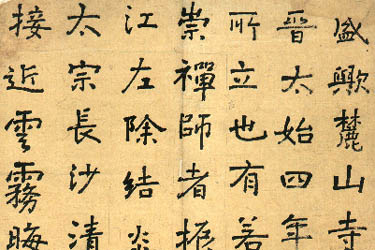 盛歟麓山寺
晉太始四年
所立也有若
崇禪師者振
江左除結
太宗長沙清
接近雲霧晦